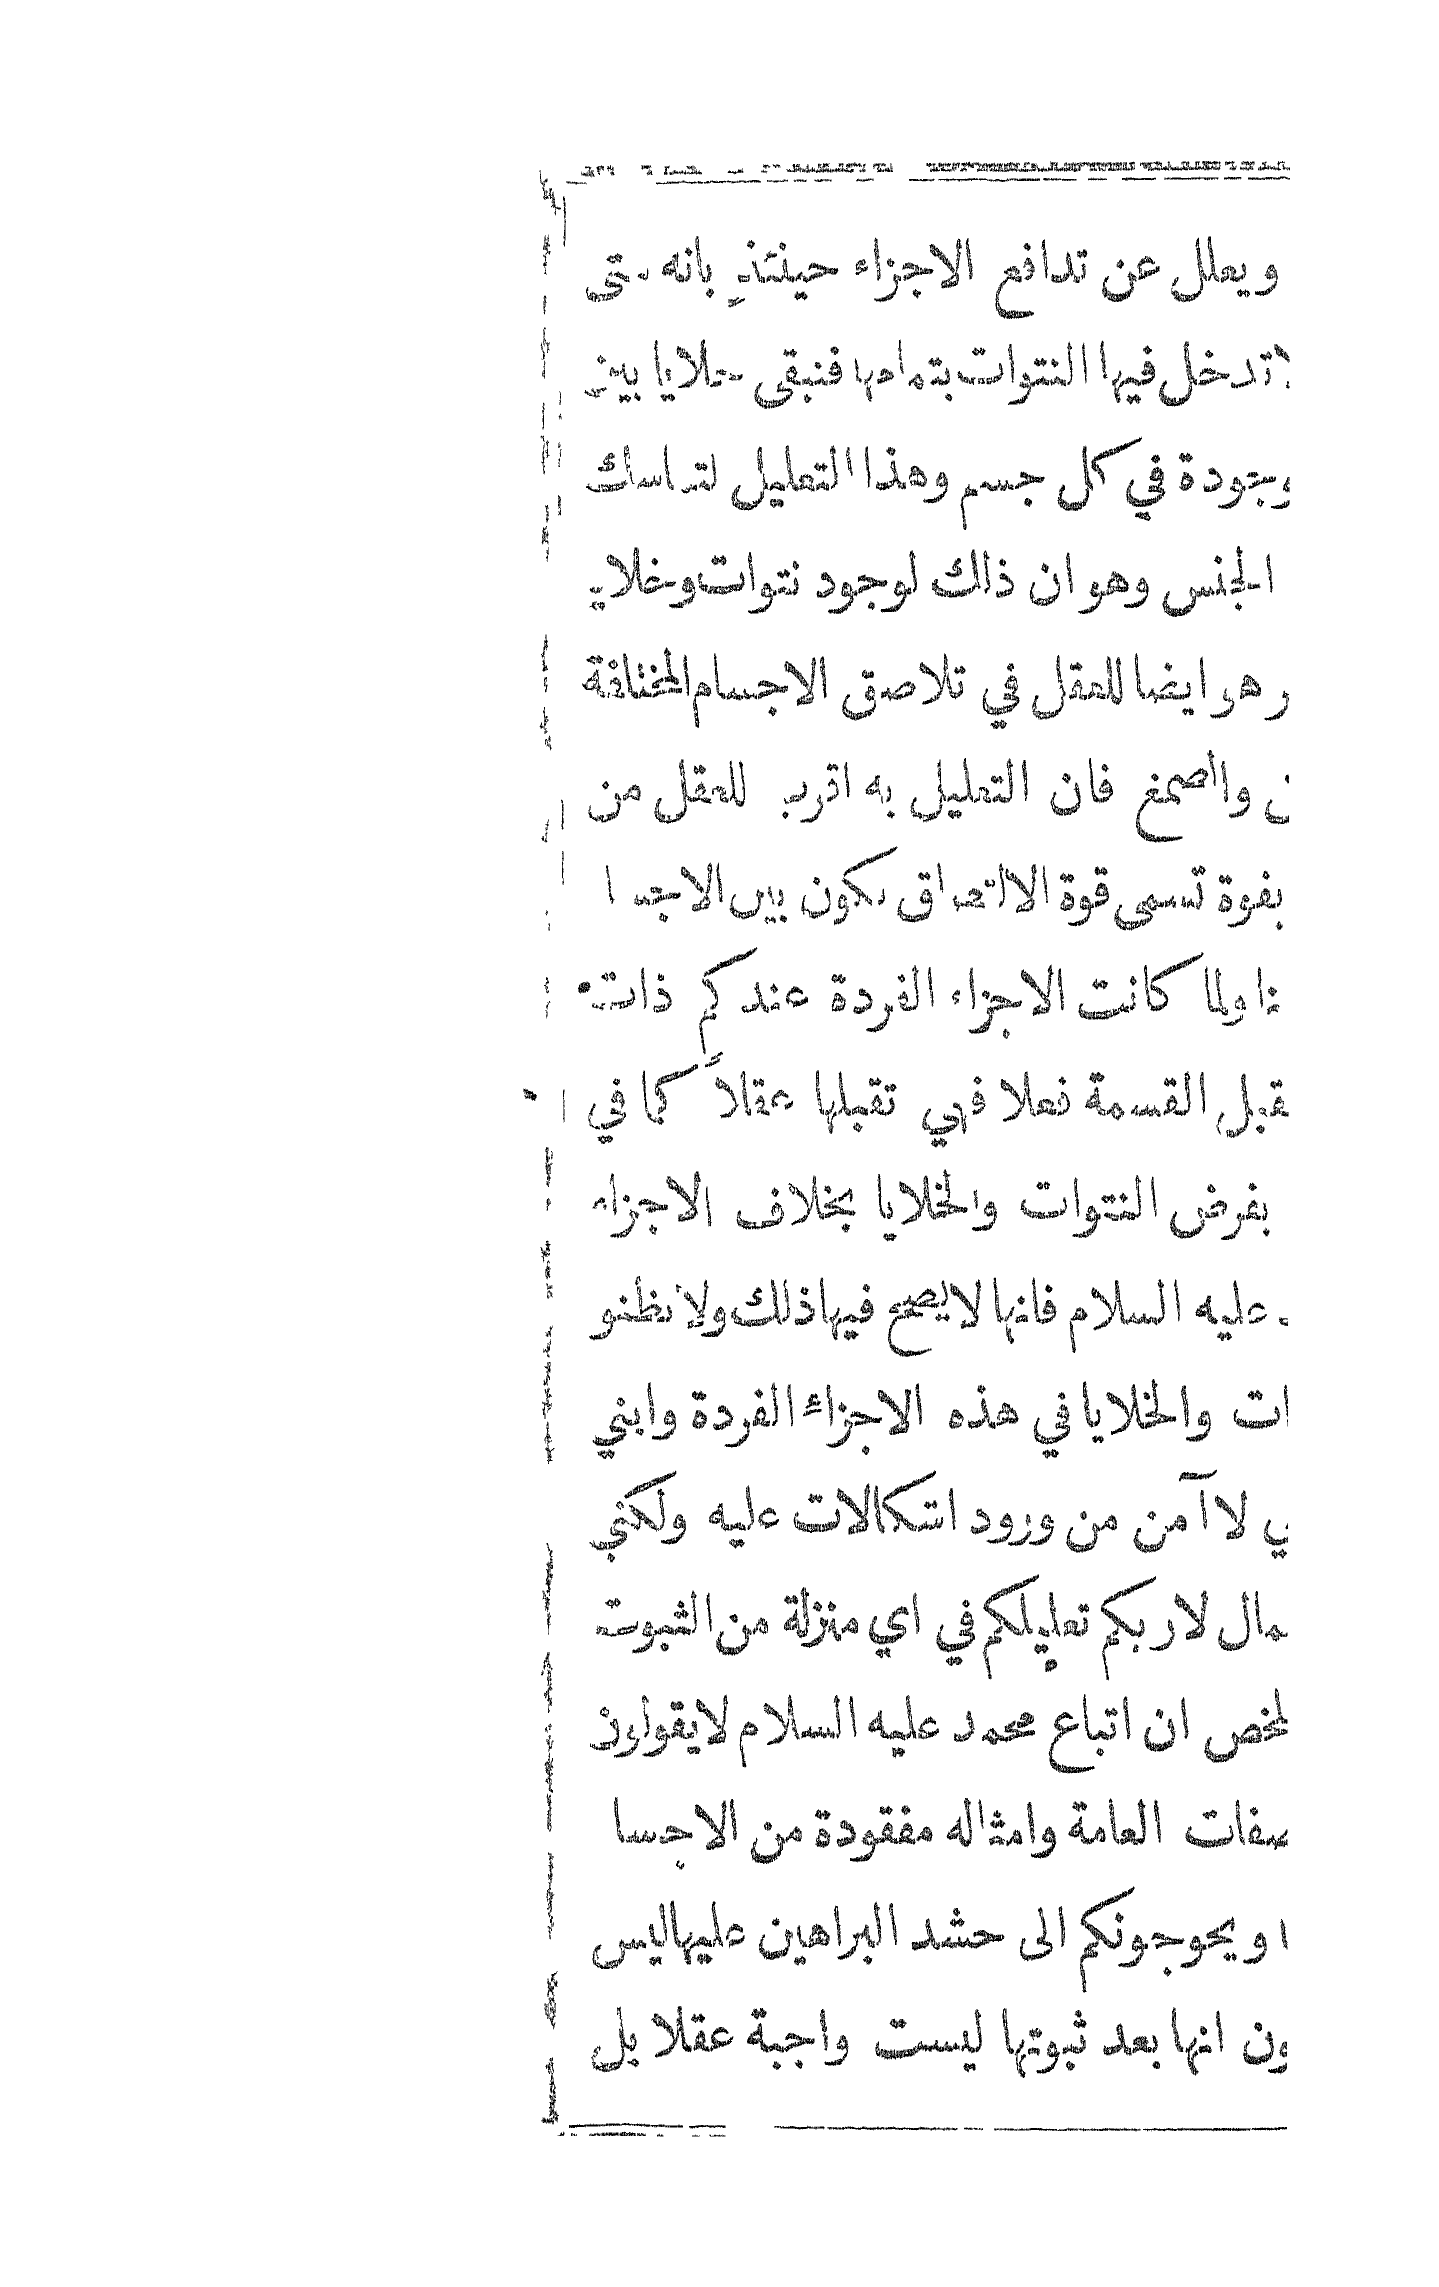 ويعلل عن تدافع الاجزاء حينئذ بانه متى
لا تدخل فيها النتوات بتمامها فتبقى خلايا بين
وجودة في كل جسم وهذا التعليل لتماسك
الجنس وهو ان ذلك لوجود نتوات وخلايا
هو ايضا للعقل في تلاصق الاجسام المختلفة
والصمغ فان التعليل به اقرب للعقل من
بقوة تسمى قوة الالتصاق تكون بين الاجسا
ولما كانت الاجزاء الفردة عندكم ذات
تقبل القسمة فعلا فهي تقبلها عقلاً كما في
بفرض النتوات والخلايا بخلاف الاجزاء
عليه السلام فانها لا يصح فيها ذلك ولا تظنو
ات والخلايا في هذه الاجزاء الفردة وابني
ي لا آمن من ورود اشكالات عليه ولكني
لاريكم تعليلكم في اي منزلة من الثبوت
لخص ان اتباع محمد عليه السلام لا يقولون
صفات العامة وامثاله مفقودة من الاجسا
ا ويحوجونكم الى حشد البراهين عليها ليس
ون انها بعد ثبوتها ليست واجبة عقلا بل